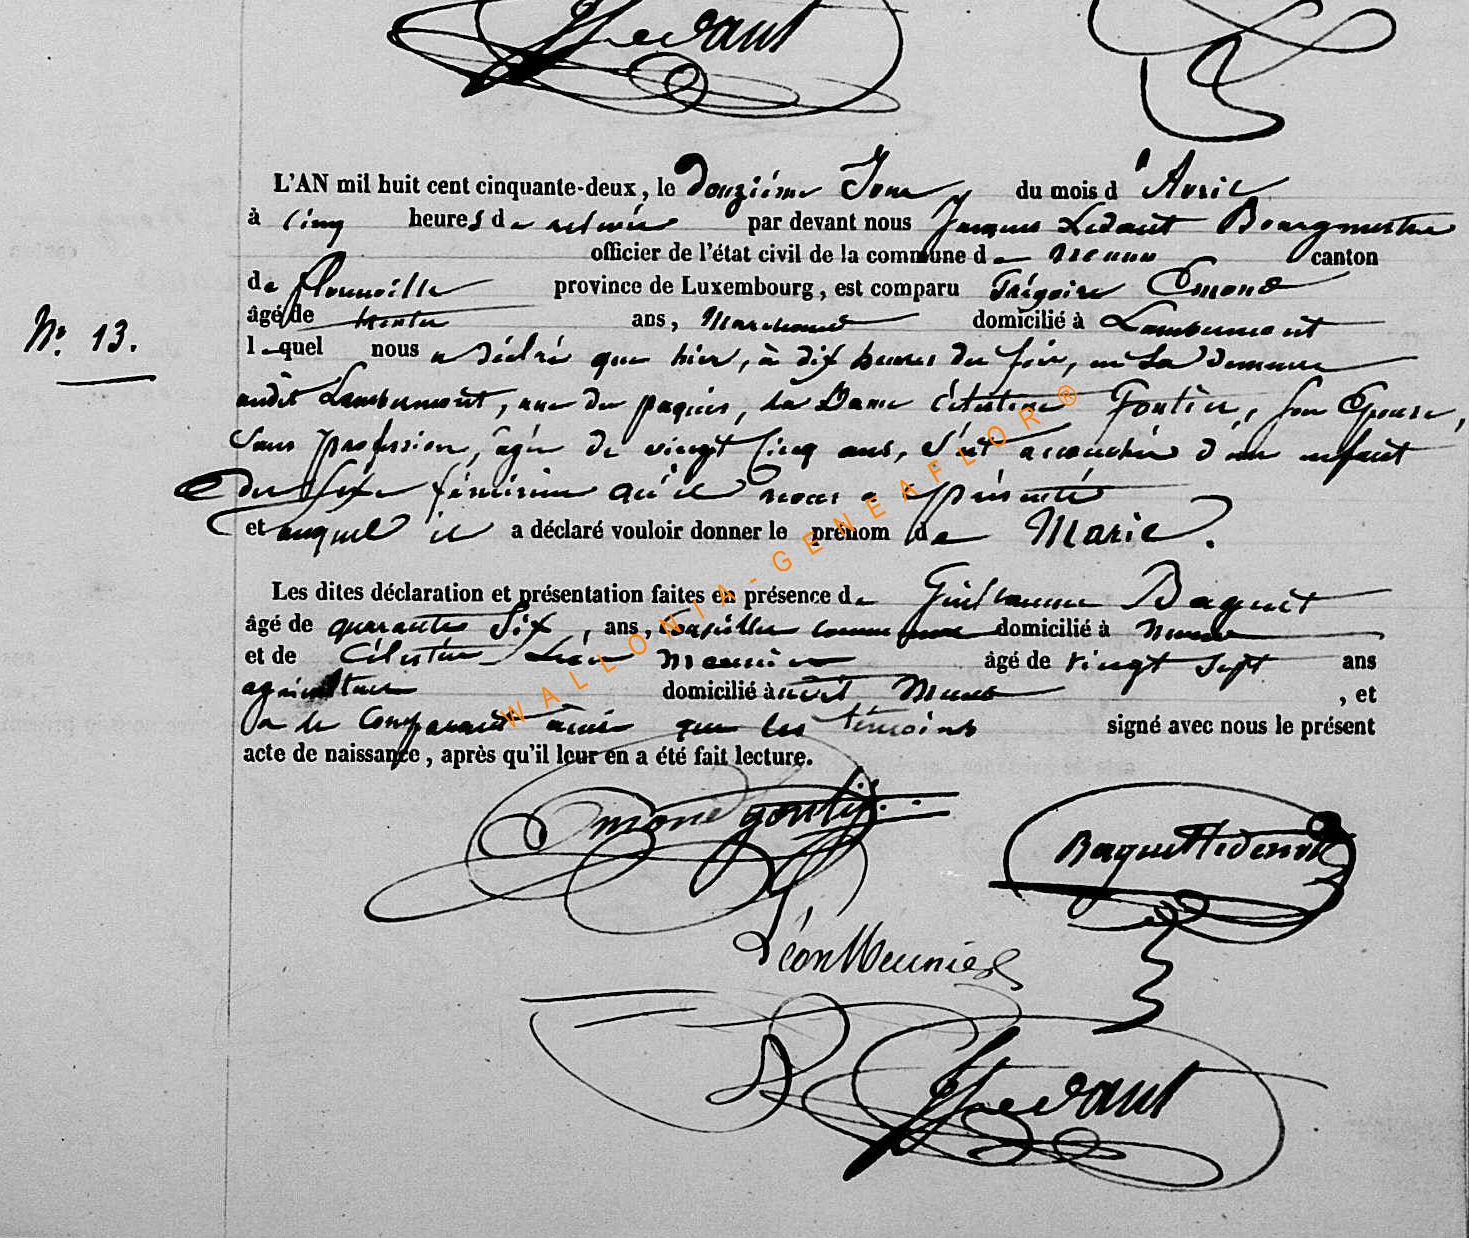 Ledant
L'AN mil huit cent cinquante-deux, le Douzième Jour du mois d'Avril
à cinq heures de relevée par devant nous Jacques Ledant Bourgmestre
officier de l'état civil de la commune de Muno canton
de Florenville province de Luxembourg, est comparu Grégoire Emond
âgé de trente ans, Marchand domicilié à Lambermont
N°. 13.
lequel nous a déclré que hier, à dix heures du soir, en sa demeure
audit Lambermont, rue du paquis, la Dame Célestine Gontier, son Epouse,
sans profession, âgée de vingt cinq ans, s'est accouchée d'un enfant
du sexe féminin qu'il nous a présenté
et auquel il a déclaré vouloir donner le prénom de Marie.
Les dites déclaration et présentation faites en présence de Guillaume Baguet
âgé de quarante six, ans, domicilié à Muno
et de Célestin Léon Meunier âgé de vingt sept ans
agriculteur domicilié à Muno, et
a le Comparant ainsi que les témoins signé avec nous le présent
acte de naissance, après qu'il leur en a été fait lecture.
Emond gontier
Baguet
Léon Meunier
Ledant
WALLONIA-GENEAFLOR®